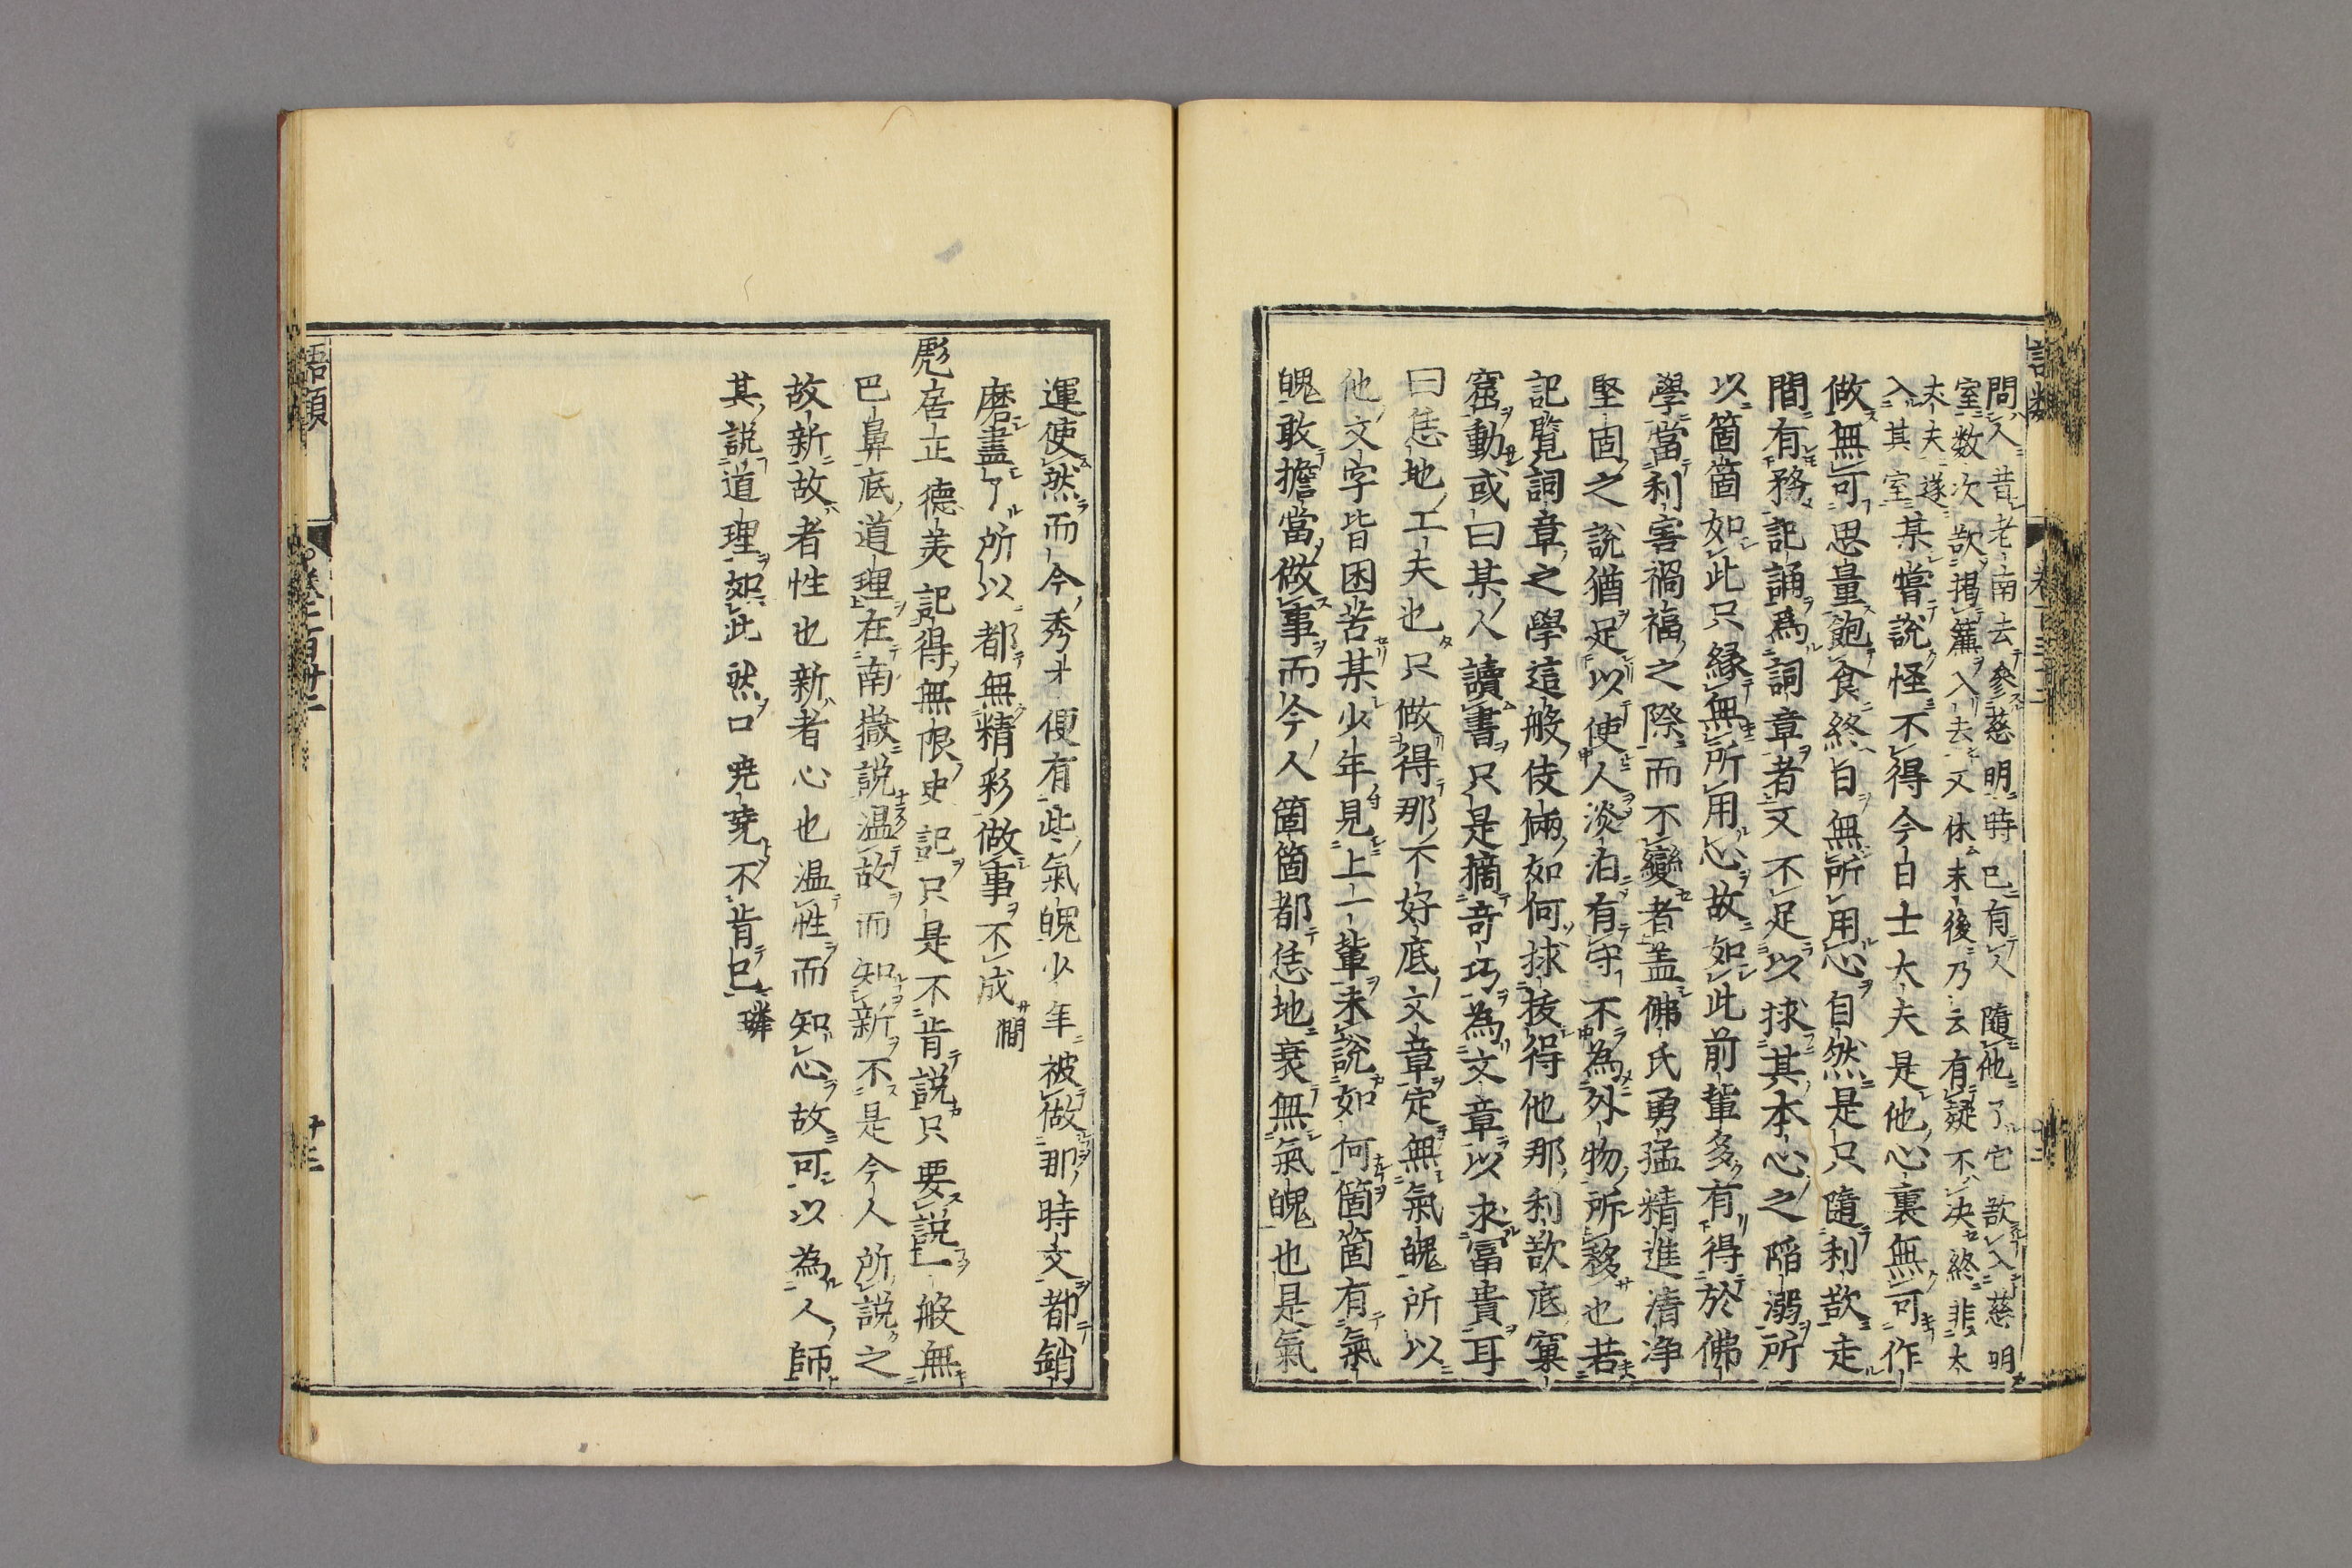 問入昔老南去參慈明時已有人隨他了它欲入慈明
室数次欲揭簾入去又休末後乃云有疑不决終非大
夫夫遂
入其室某嘗說怪不得今日士大夫是他心裏無可作
做無可思量飽食終日無所用心自然是只隨利欲走
間有務記誦爲詞章者文不足以捄其本心之陷溺所
以箇箇如此只緣無所用心故如此前輩多有得於佛
學當利害禍福之際而不變者盖佛氏勇猛精進清净
堅固之說猶足以使人淡泊有守不為外物所移也若
記覧詞章之學這般伎倆如何捄拔得他那利欲底窠
窟動或曰某人讀書只是摘奇巧為文章以求富貴耳
曰恁地工夫也只做得那不好底文章定無氣魄所以
他文字皆困苦某少年見上一輩未說如何箇箇有氣
魄敢擔當做事而今人箇箇都恁地衰無氣魄也是氣
運使然而今秀才便有此氣魄少年被做那時文都銷
磨盡了所以都無精彩做事不成澗
彪居正德美記得無限史記只是不肯說只要說一般無
巴鼻底道理在南嶽說温故而知新不是今人所說之
故新故者性也新者心也温性而知心故可以為人師
其說道理如此然口嘵嘵不肯已璘
語類
卷一百卅二
十三